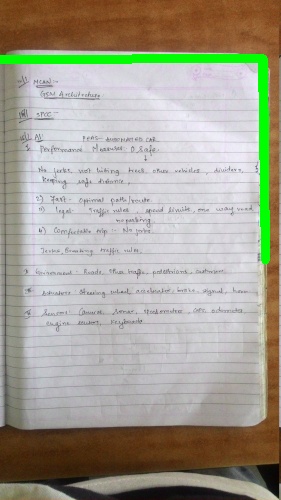 MCAN :-
GSM Architecture
SPCC :-
AI PEAS - AUTOMATED CAR
Performance Measures: ① Safe -
No jerks, not hitting trees, other vehicles, dividers,
Keeping safe distance,
2) Fast - Optimal path/route
3) Legal - Traffic rules, speed limits, one way road
4) Comfortable trip :- No jerks
breaking traffic rules.
Environment - Roads, other traffic, pedestrians, customers.
Actuators - Steering wheel, accelerator, brake, signal, horn
Sensors - Cameras, Sonar, speedometers, GPS, odometer
engine sensors, keyboards